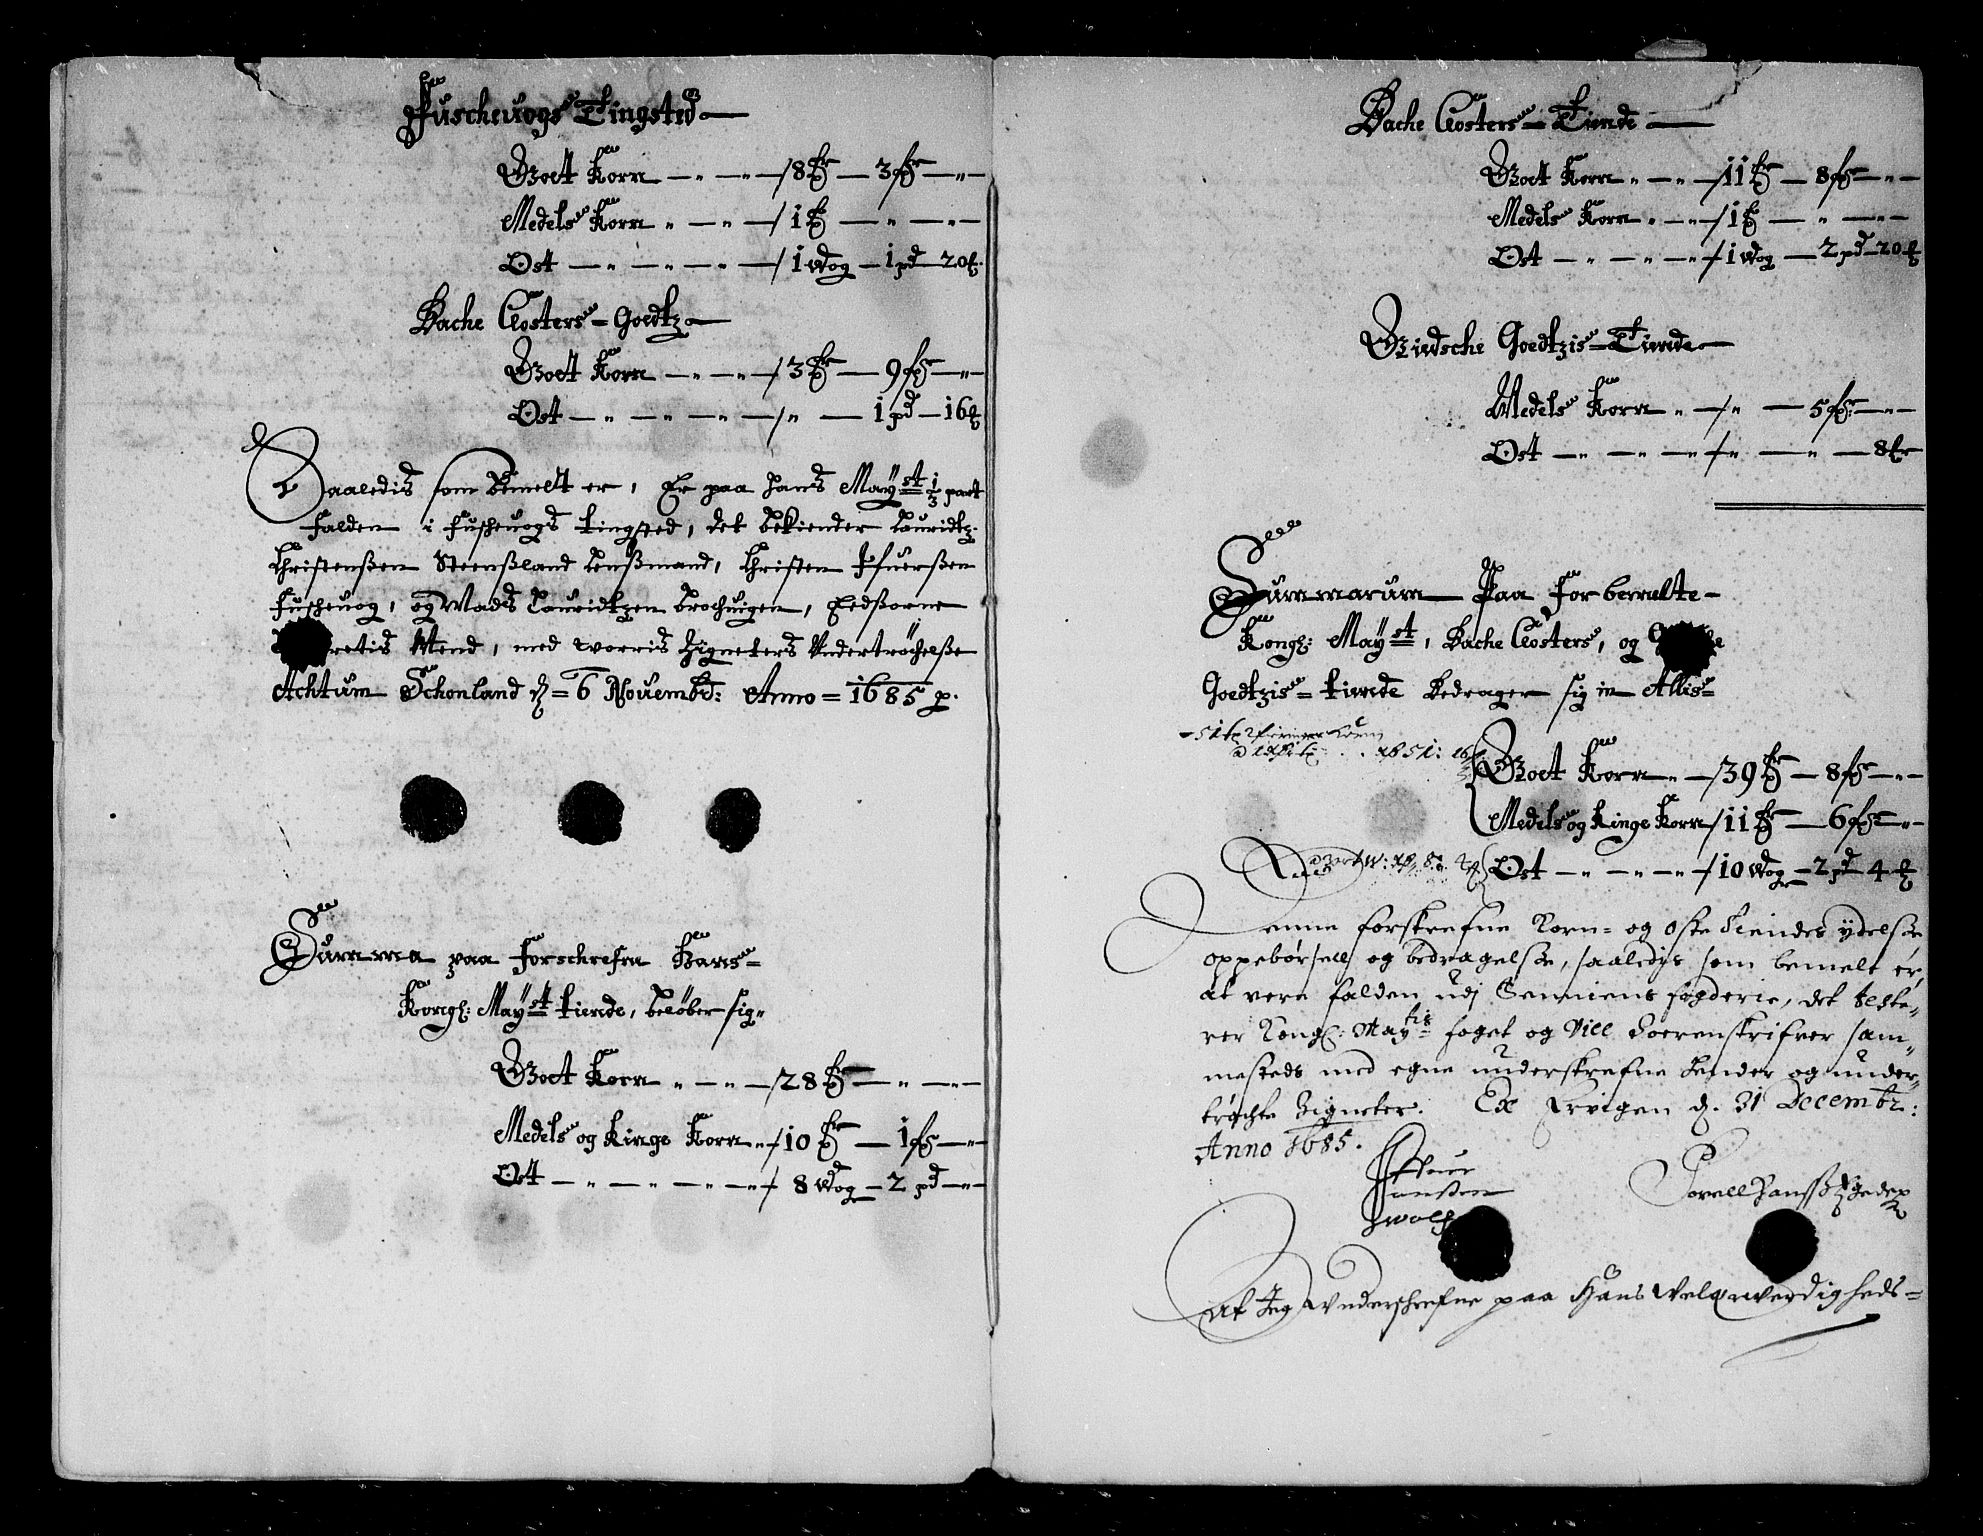 Fuscheuogs Tingsted
Goet Korn — 8 — 3
Medels Korn — 1
Ost — 1 wog — 1 pd — 20
Bache Closters Goedtz
Goet Korn — 3 — 9
Ost — 1 pd — 16
Saaledis som bemelt er, Er paa hans Mayst 1/3 part
falden i fuscheuogs tingsted, det bekiender Lauridtz
Christensßen Steensland Lensmand, Christen
fuscheuog, og Mads Lauridtzen brochuigen, Eedsorne
Mend, med worris Zigneters Vndertröchelße
Achtum Schonland d = 6 Novembr: Anno = 1685
Summa paa forschrefn Hans
Kongl: Mayst tiende, beløber sig
Goet Korn — 28
Medels og Ringe Korn — 10 — 1
Ost — 8 wog — 2 pd
Bache Closters Tiende
Goet Korn — 11 — 8
Medels Korn — 1
Ost — 1 wog — 2 pd 20
Giedsche Goedtzis Tiende
Medels Korn — 5
Ost — 8
Summarum Paa for bemelte
Kongl: Mayst, Bache Closters, og
Goedtzis tiende Bedrager sig in Allis
Goet Korn — 39 — 8
Medels og Ringe Korn 11 — 6
Ost — 10 wog — 2 pd 4
Denne forskrefne Korn- og Oste Tiendes ydelsse
oppebørsell og bedragelsse, saaledis som bemelt er
at vere falden udj Senniens fogderie, det teste-
rer Kongl: Maytis foget og Vill Soerenskrifver sam-
mesteds med egne underskrefne hender og under-
trøchte Zigneter. Ex Ervigen d. 31 Decembr:
Anno 1685.
Af Jeg Vnderschrefne paa Hans Velærverdigheds